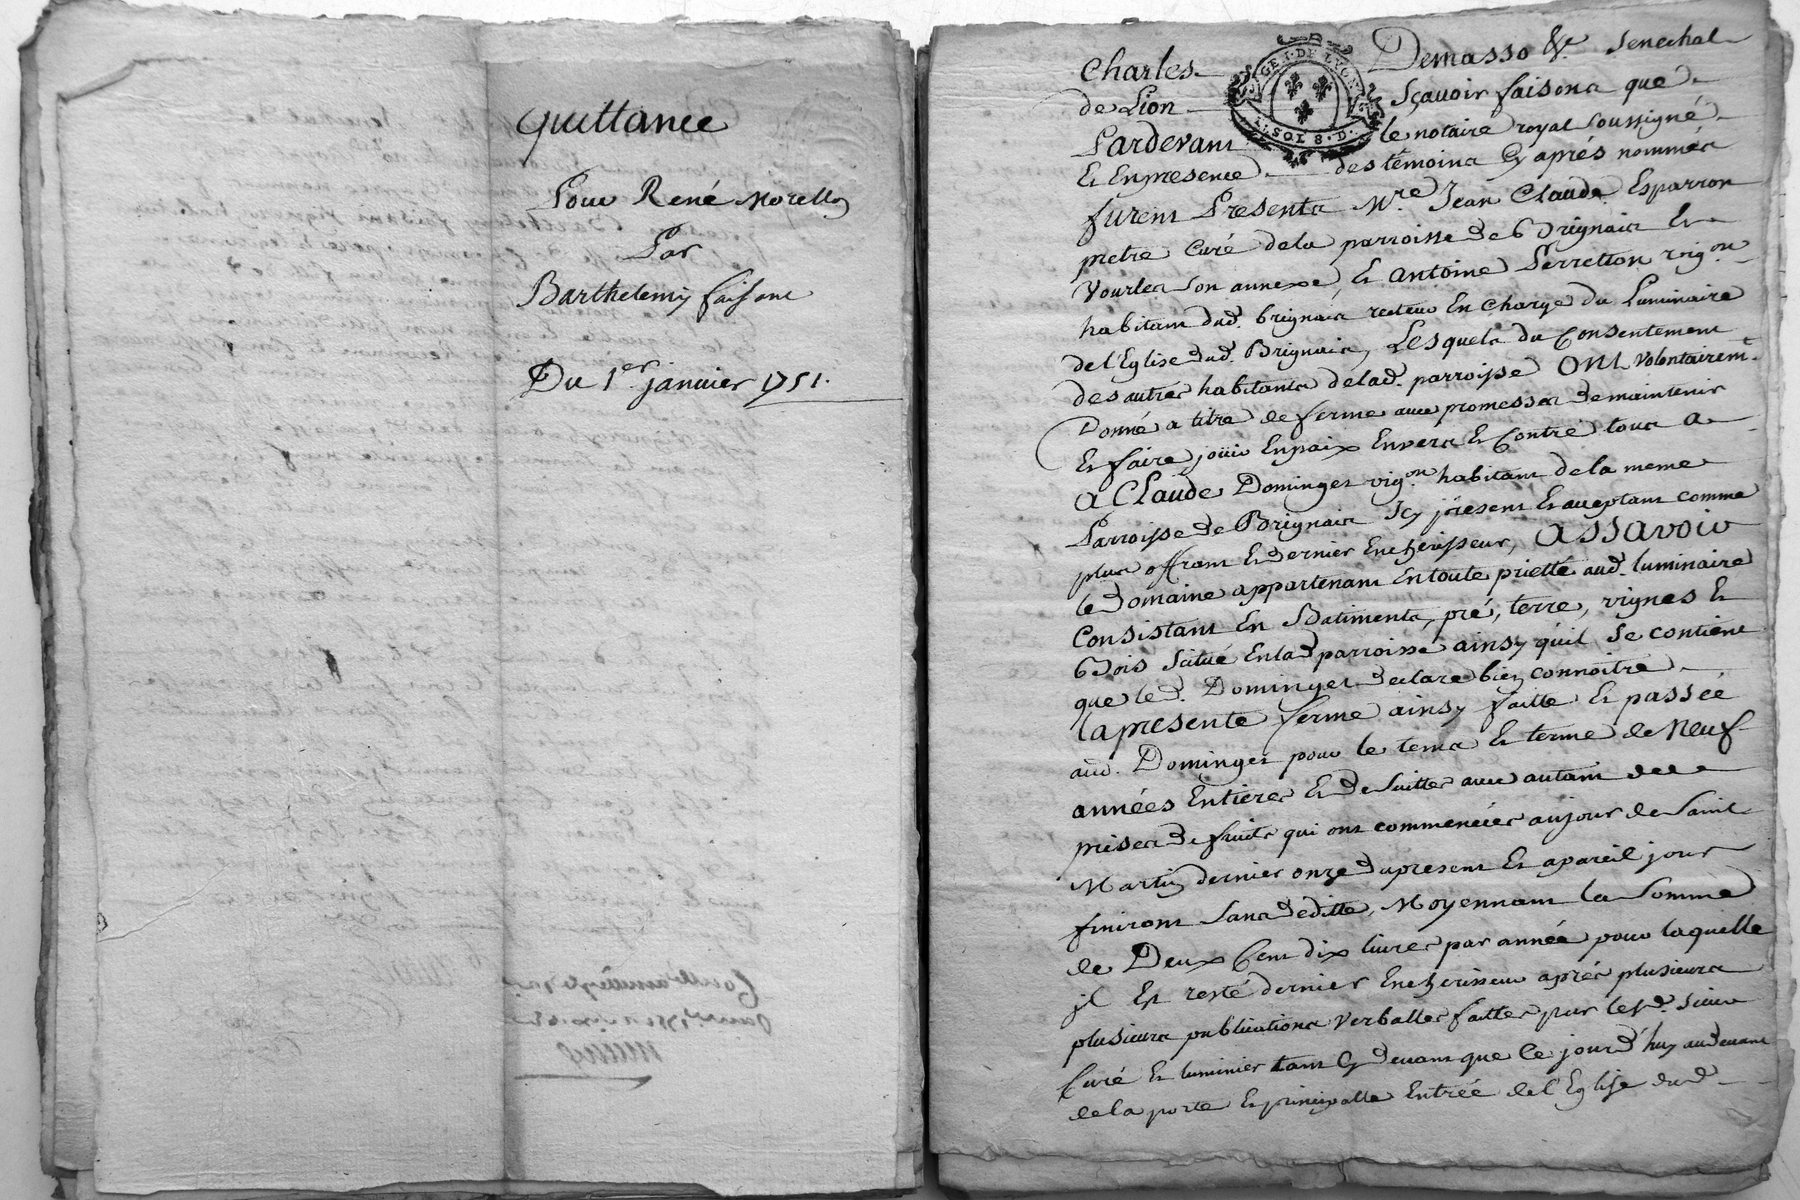 Quittance
Pour René Morellon
Par
Barthelemy faisant
Du 1er janvier 1751.
Charles Demasso &c. Senechal
de Lion Sçavoir faisons que
Pardevant le notaire royal soussigné
Et En presence des témoins Cy aprés nommés
furent Presents Mre Jean Claude Esparron
pretre Curé de la parroisse de Brignais Et
Vourles son annexe, Et antoine Perretton vigon
habitant dud. brignais recteur En Charge du Luminaire
de l'Eglise dud. Brignais, Lesquels du Consentement
des autres habitants de lad. parroisse ONt volontairemt
Donné a titre de ferme avec promesses de maintenir
Et faire joüir En paix Envers Et Contre tous a
a Claude Dominget vigon habitant de la meme
Parroisse de Brignais Icy present Et acceptant comme
plus offrant Et dernier Encherisseur, assavoir
le Domaine appartenant En toute prieté aud. luminaire
Consistant En Batiments, pré, terre, vignes Et
Bois Scitué En lad parroisse ainsy qu'il se contient
que led. Dominget declare bien connoitre
la presente ferme ainsy faitte Et passée
aud. Dominget pour le tems Et terme de Neuf
années Entieres Et de suittes avec autant de
prises de fruits qui ont commencées au jour de Saint
Martin dernier onze du present Et a pareil jour
finiront sans déditte, Moyennant la Somme
de Deux Cent dix livres par année pour laquelle
il Est resté dernier Encherisseur aprés plusieurs
plusieurs publications verballes faittes par led. sieur
Curé Et luminier tant Cy devant que Ce jourd'huy au devant
de la porte Et principalle Entrée de l'Eglise dud